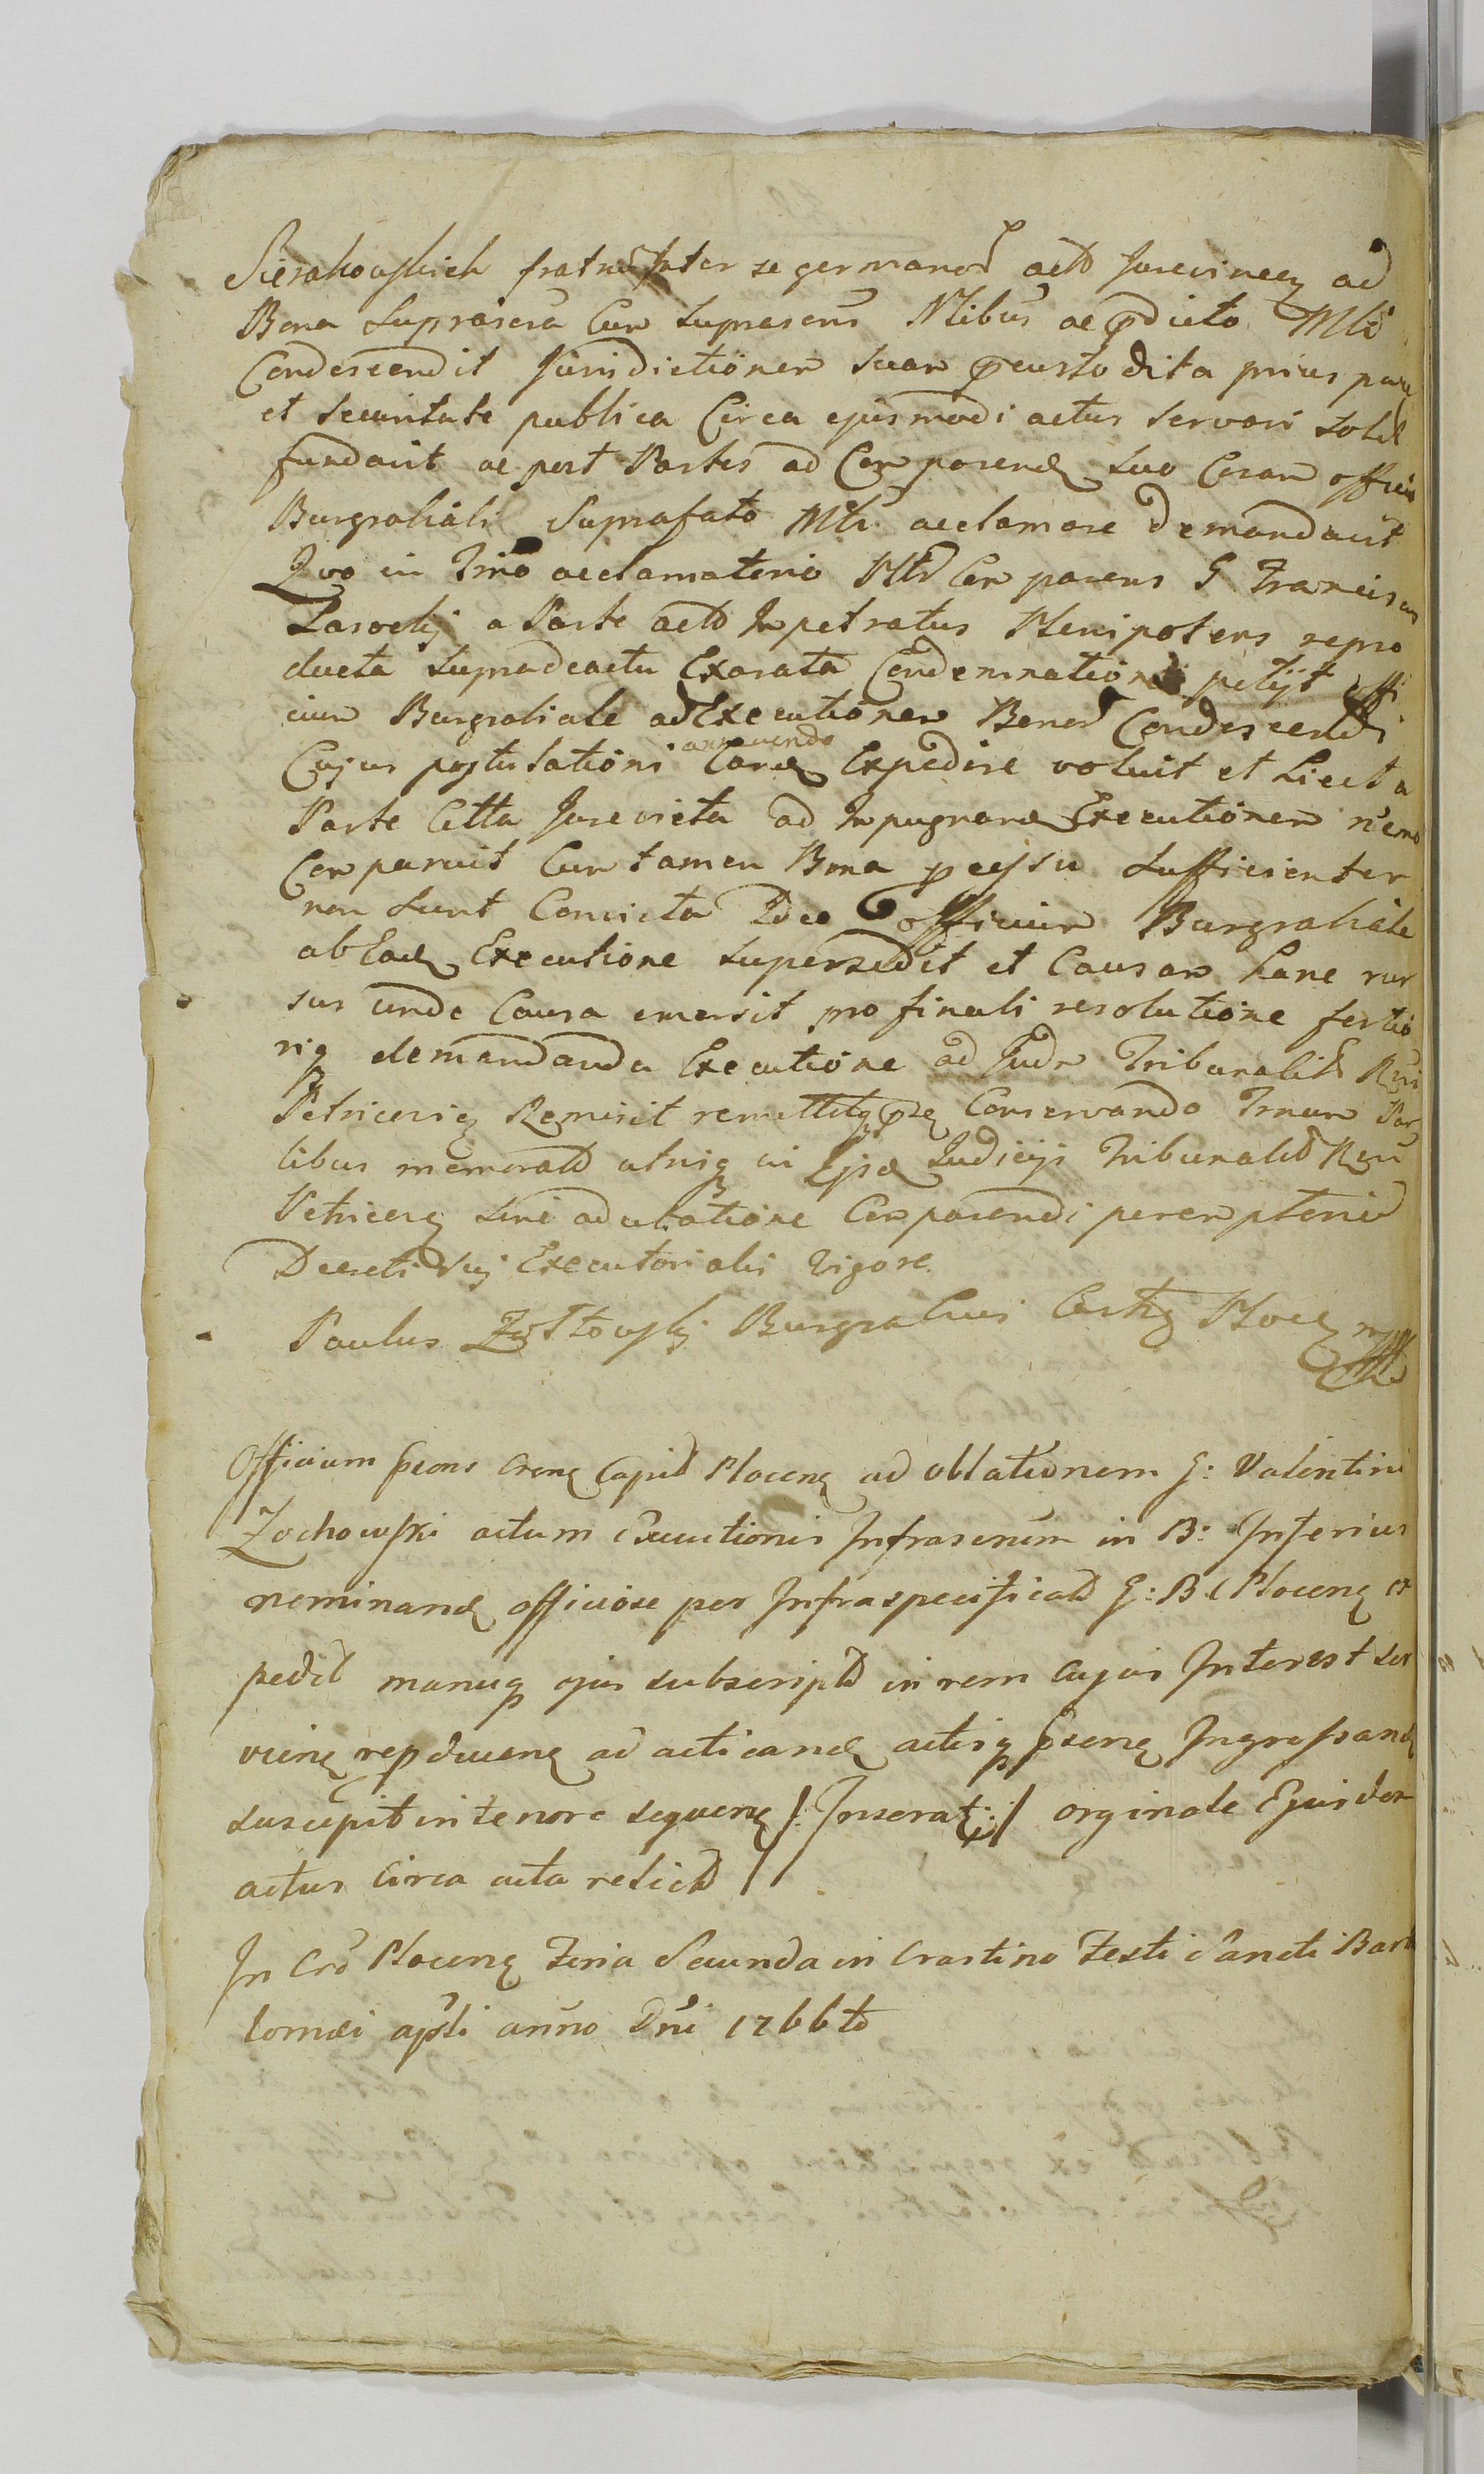 Sierakowskich fratrũ Inter se germanor actõ Jurevincen ad
Bona Suprascra Cum Suprascris Nlibus ac pdicto Mlí
Condescendit Jurisdictionem suam pcustodita prius pace
et securitate publica Circa ejusmodi actus servari solit
fundavit ac post Partes ad Comparend suo Coram officio
Burgrabiali Suprafato Mlí acclamare demandavit
Quo in Tmõ acclamatorio Comparens G Franciscus
a Parte actõ Impetratus Plenipotens repro
ducta Supradeactu Exarata Condemnatione petijt offi
cium Burgrabiale ad Executionem Bonor Condescendi
Cujus postulationi annuendo Eand Expedire voluit et Licet a
Parte Citta Jurevicta ad Impugnand Executionem nemo
Comparuit Cum tamen Bona sufficienter
non sunt Convicta Ideo officium Burgrabiale
ab Ead Executione supersedit et Causam hanc rur
sus unde Causa emersit pro finali resolutione fortio
riq demandanda Executione ad Judn Tribunalit Rgni
Petricovien Remisit remittitq Conservando Tmum Par
tibus memoratõ utrisq in Ijsd Judicijs Tribunalit Rgni
Petricovien sine adcitatione Comparendi peremptoriũ
Decreti sui Executorialis vigore
Paulus Burgrabius Castr Plocen mpp
Officium pcons Crense Capit Plocen ad oblationem G: Valentini
Zochowski actum Executionis Infrascrum in B: Inferius
nominand officiose per Infraspecificatõ G: B C Plocen ex
pedit manuq ejus subscriptõ in rem cujus Interest ser
vien repducend ad acticand actisq psen Ingrossand
suscepit in tenore sequen /: Inserat :/ orginale Ejusdem
actus circa acta relictõ //
In Crõ Plocen Feria Secunda in Crastino Festi Sancti Bart
lomæi apsti anno Dni 1766tõ